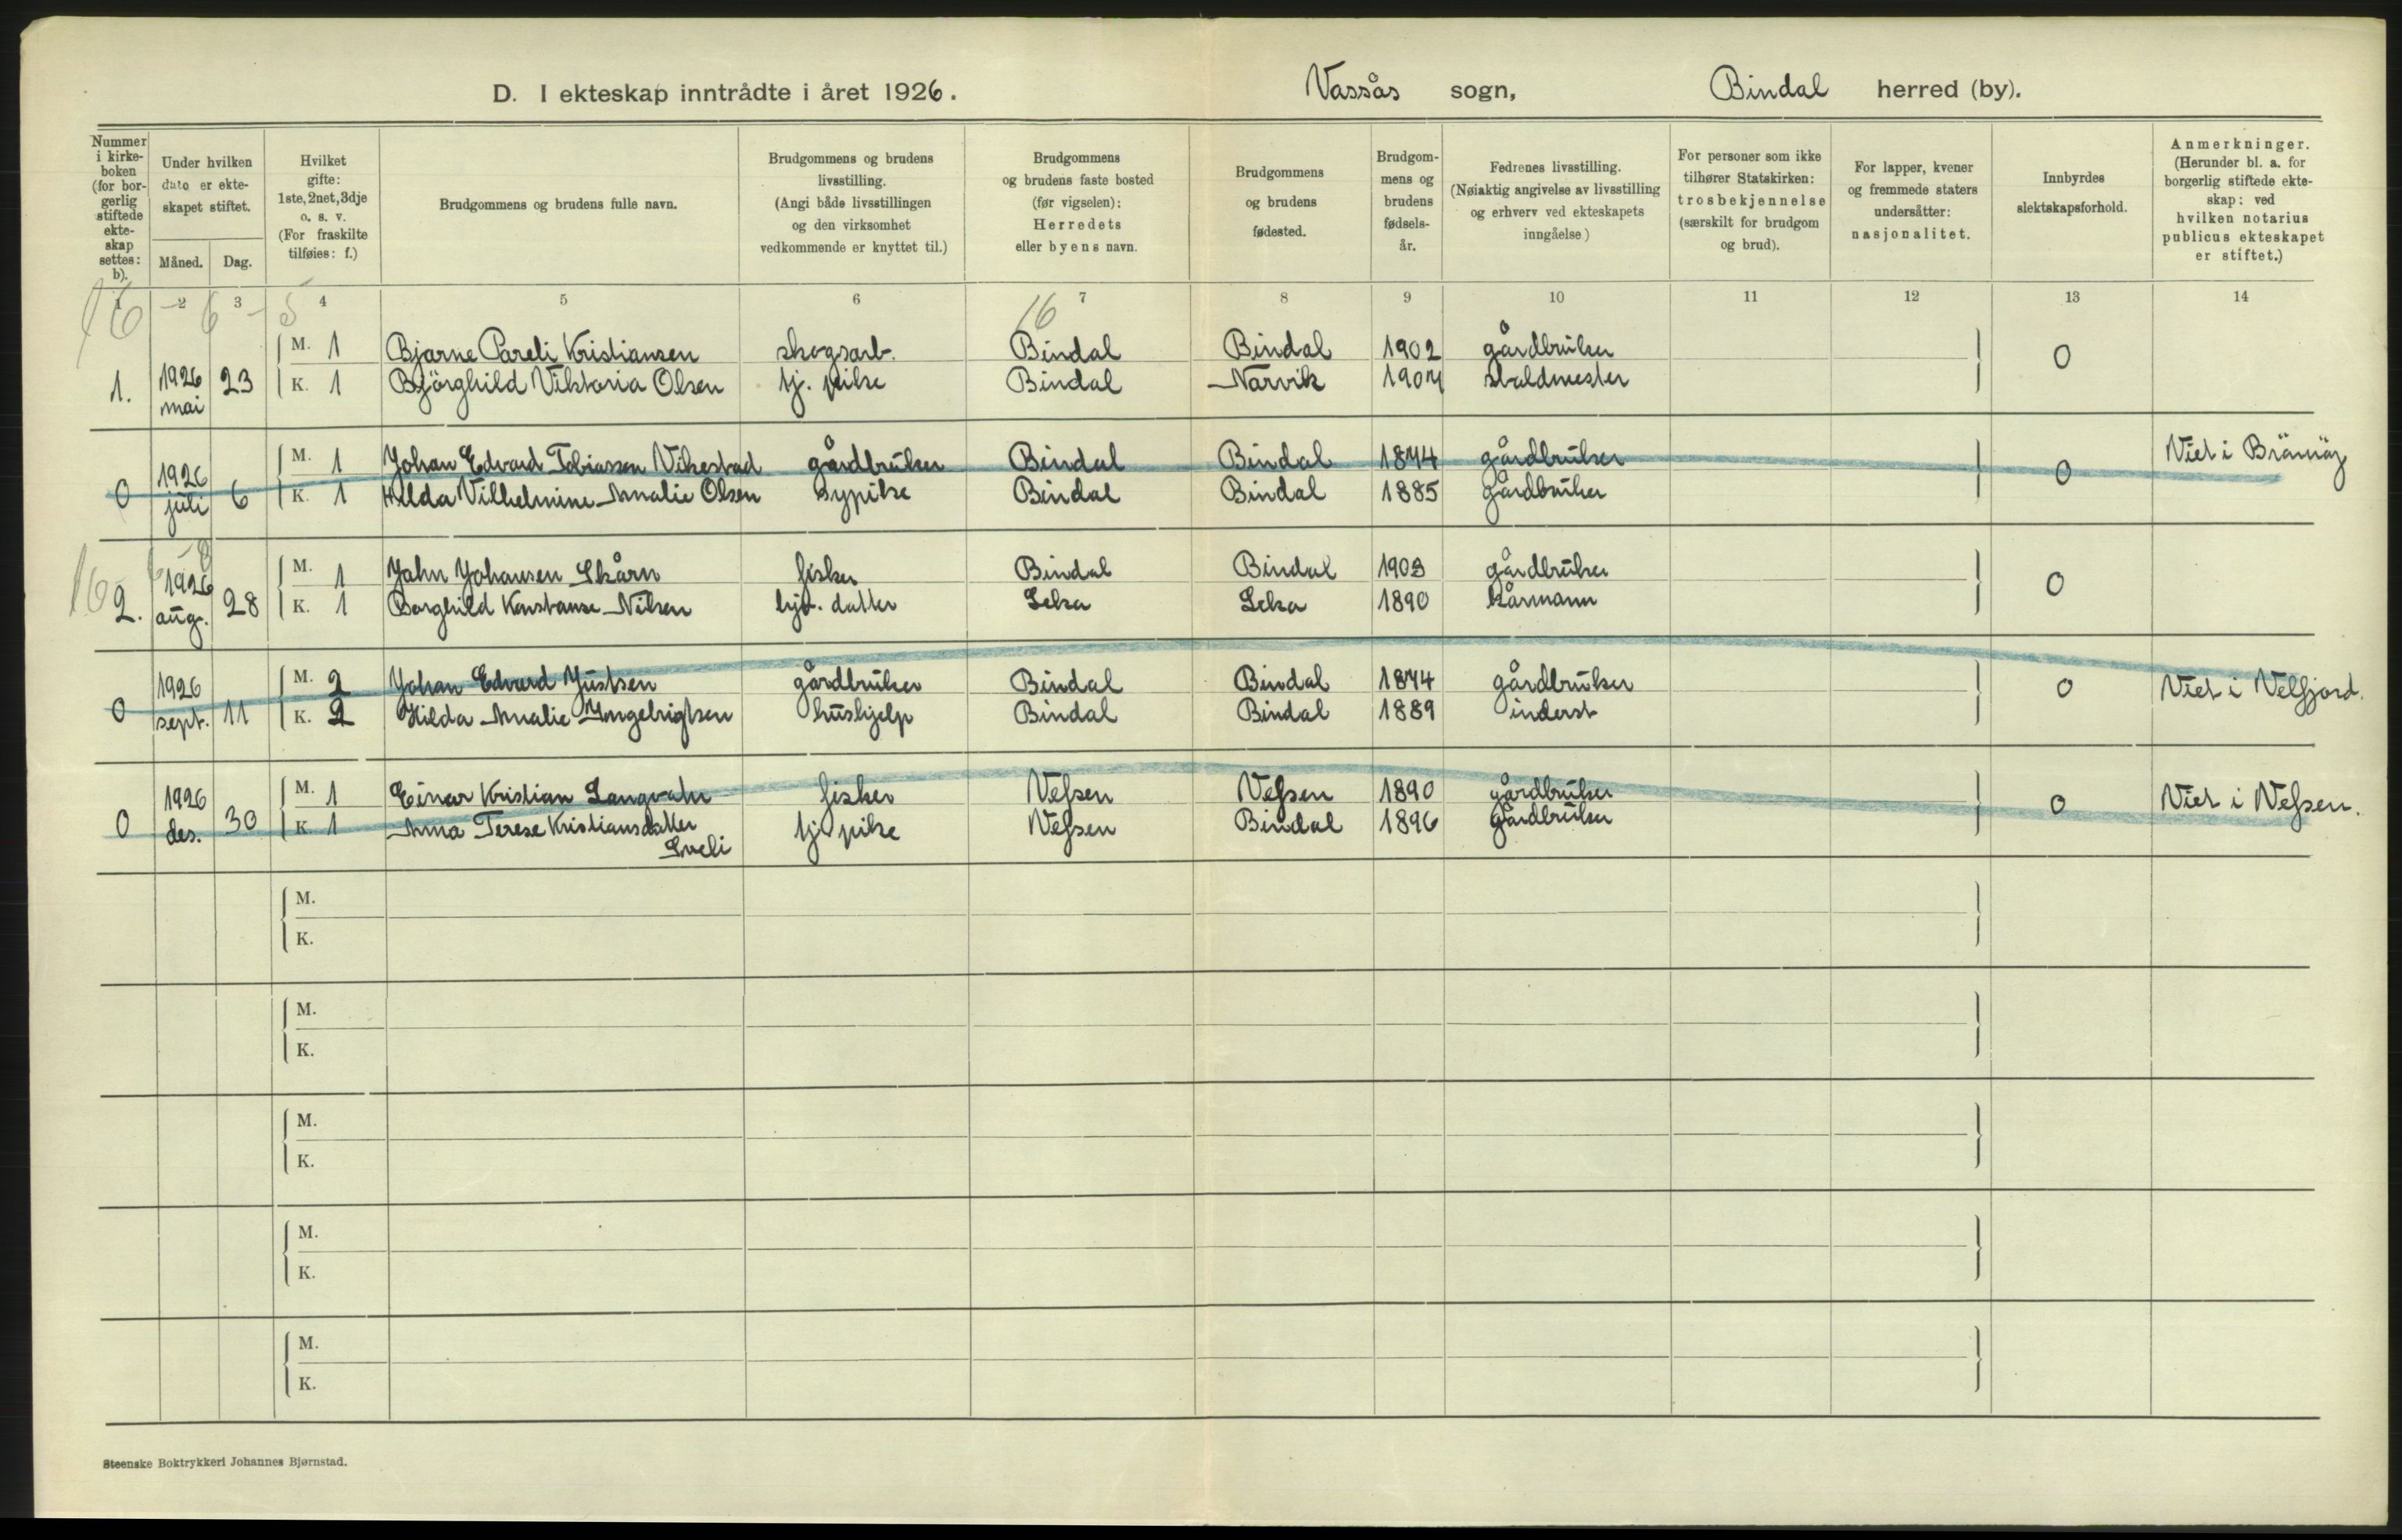 D. I ekteskap inntrådte i året 1926. Vassås sogn, Bindal herred (by).
Nummer i kirke-boken (for bor-gerlig stiftede ekte-skap settes: b).
Under hvilken dato er ekte-skapet stiftet.
Måned. Dag.
Hvilket gifte: 1ste, 2net, 3dje o. s. v. (For fraskilte tilføies: f.)
Brudgommens og brudens fulle navn.
Brudgommens og brudens livsstilling. (Angi både livsstillingen og den virksomhet vedkommende er knyttet til.)
Brudgommens og brudens faste bosted (før vigselen): Herredets eller byens navn.
Brudgommens og brudens fødested.
Brudgom-mens og brudens fødsels-år.
Fedrenes livsstilling. (Nøiaktig angivelse av livsstilling og erhverv ved ekteskapets inngåelse)
For personer som ikke tilhører Statskirken: trosbekjennelse (særskilt for brudgom og brud).
For lapper, kvener og fremmede staters undersåtter: nasjonalitet.
Innbyrdes slektskapsforhold.
Anmerkninger. (Herunder bl. a. for borgerlig stiftede ekte-skap: ved hvilken notarius publicus ekteskapet er stiftet.)
1 2 3 4 5 6 7 8 9 10 11 12 13 14
16 6 5 16
M. 1 Bjarne Pareli Kristiansen skogsarb. Bindal Bindal 1902 gårdbruker 0
1. 1926 mai 23 K. 1 Bjørghild Viktoria Olsen tj. pike Bindal Narvik 1904 staldmester
M. 1 Johan Edvard Tobiassen Vikestad gårdbruker Bindal Bindal 1874 gårdbruker 0 Viet i Brønnøy
0 1926 juli 6 K. 1 Hilda Vilhelmine Amalie Olsen sypike Bindal Bindal 1885 gårdbruker
M. 1 John Johansen Skårn fisker Bindal Bindal 1903 gårdbruker 0
16 2. 1926 aug. 28 K. 1 Borghild Konstanse Nilsen hj. datter Leka Leka 1890 kårmann
M. 2 Johan Edvard Justsen gårdbruker Bindal Bindal 1874 gårdbruker 0 Viet i Velfjord.
0 1926 sept. 11 K. 2 Hilda Amalie Ingebrigtsen hushjelp Bindal Bindal 1889 inderst
M. 1 Einar Kristian Langvatn fisker Vefsen Vefsen 1890 gårdbruker 0 Viet i Vefsen.
0 1926 des. 30 K. 1 Anna Terese Kristiansdatter tj pike Vefsen Bindal 1896 gårdbruker
M.
K.
M.
K.
M.
K.
M.
K.
M.
K.
Steenske Boktrykkeri Johannes Bjørnstad.